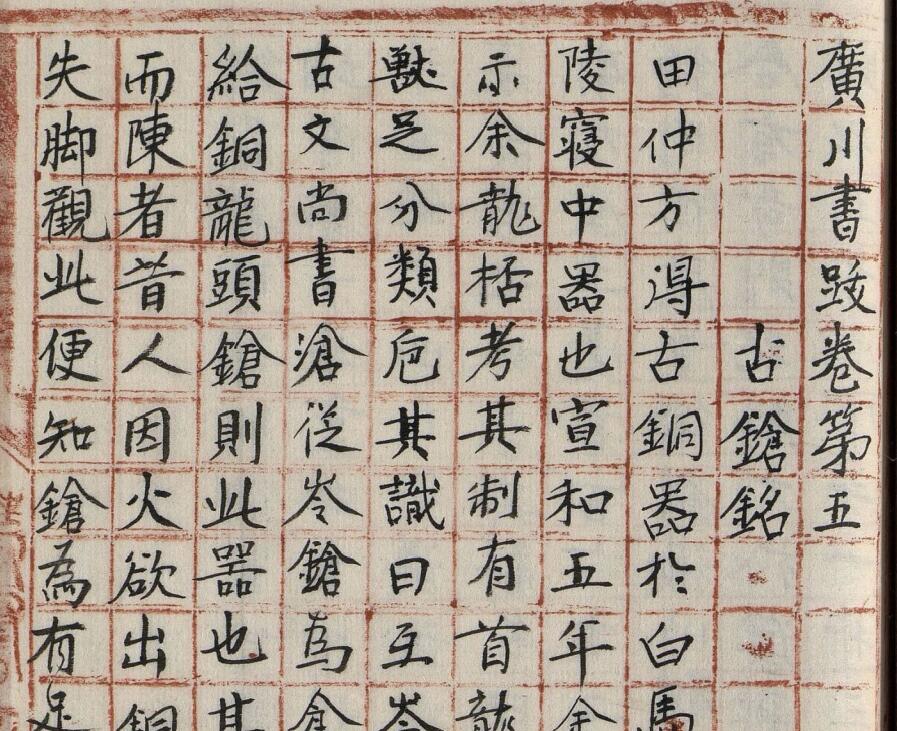 廣川書跋卷第五
古鎗銘
田仲方淂古銅器於白馬
陵寢中器也宣和五年
示余龍桮考其制有首龍
獸足分類卮其識曰互岑
古文尚書滄從岑鎗為
給銅龍頭鎗則此器也其
而陳者昔人因火欲出銅
失脚觀此便知鎗為有足